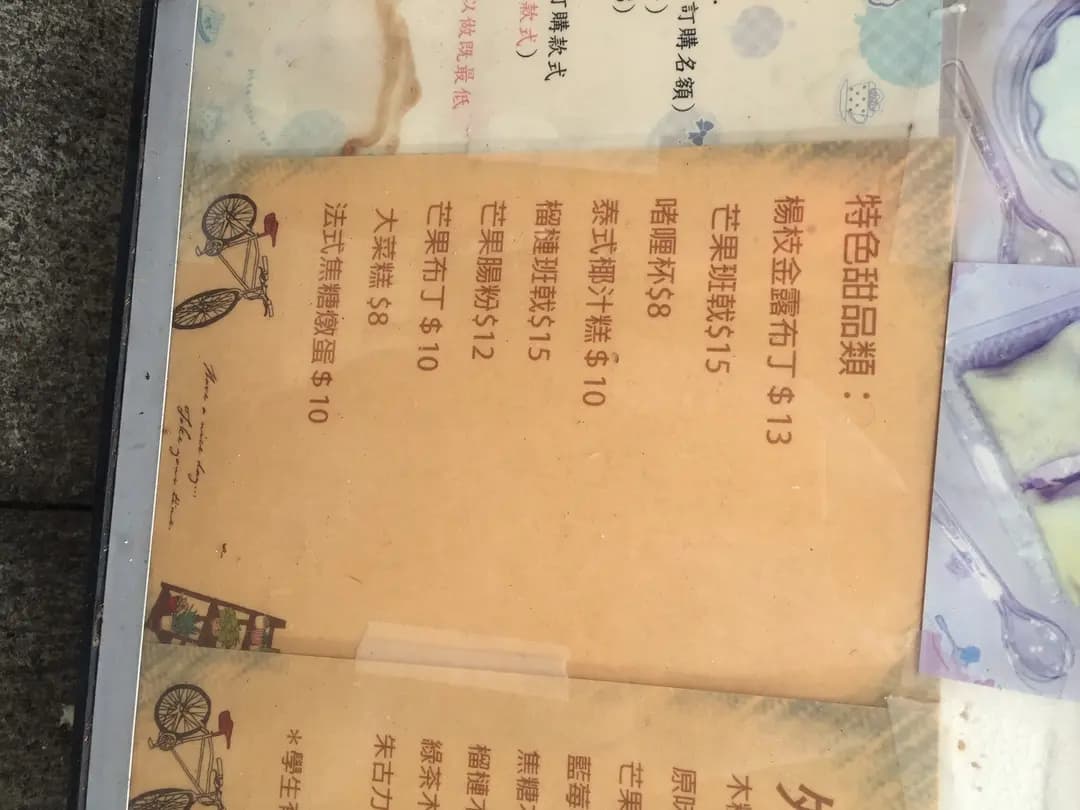 訂購名額）
訂購款式
款式）
以做既最低
特色甜品類：
楊枝金露布丁 $13
芒果班戟$15
啫喱杯$8
泰式椰汁糕 $10
榴槤班戟$15
芒果腸粉$12
芒果布丁 $10
大菜糕 $8
法式焦糖燉蛋 $10
Have a nice day...
Take your time.
原味
芒果
藍莓
焦糖
榴槤
綠茶
朱古力
*學生